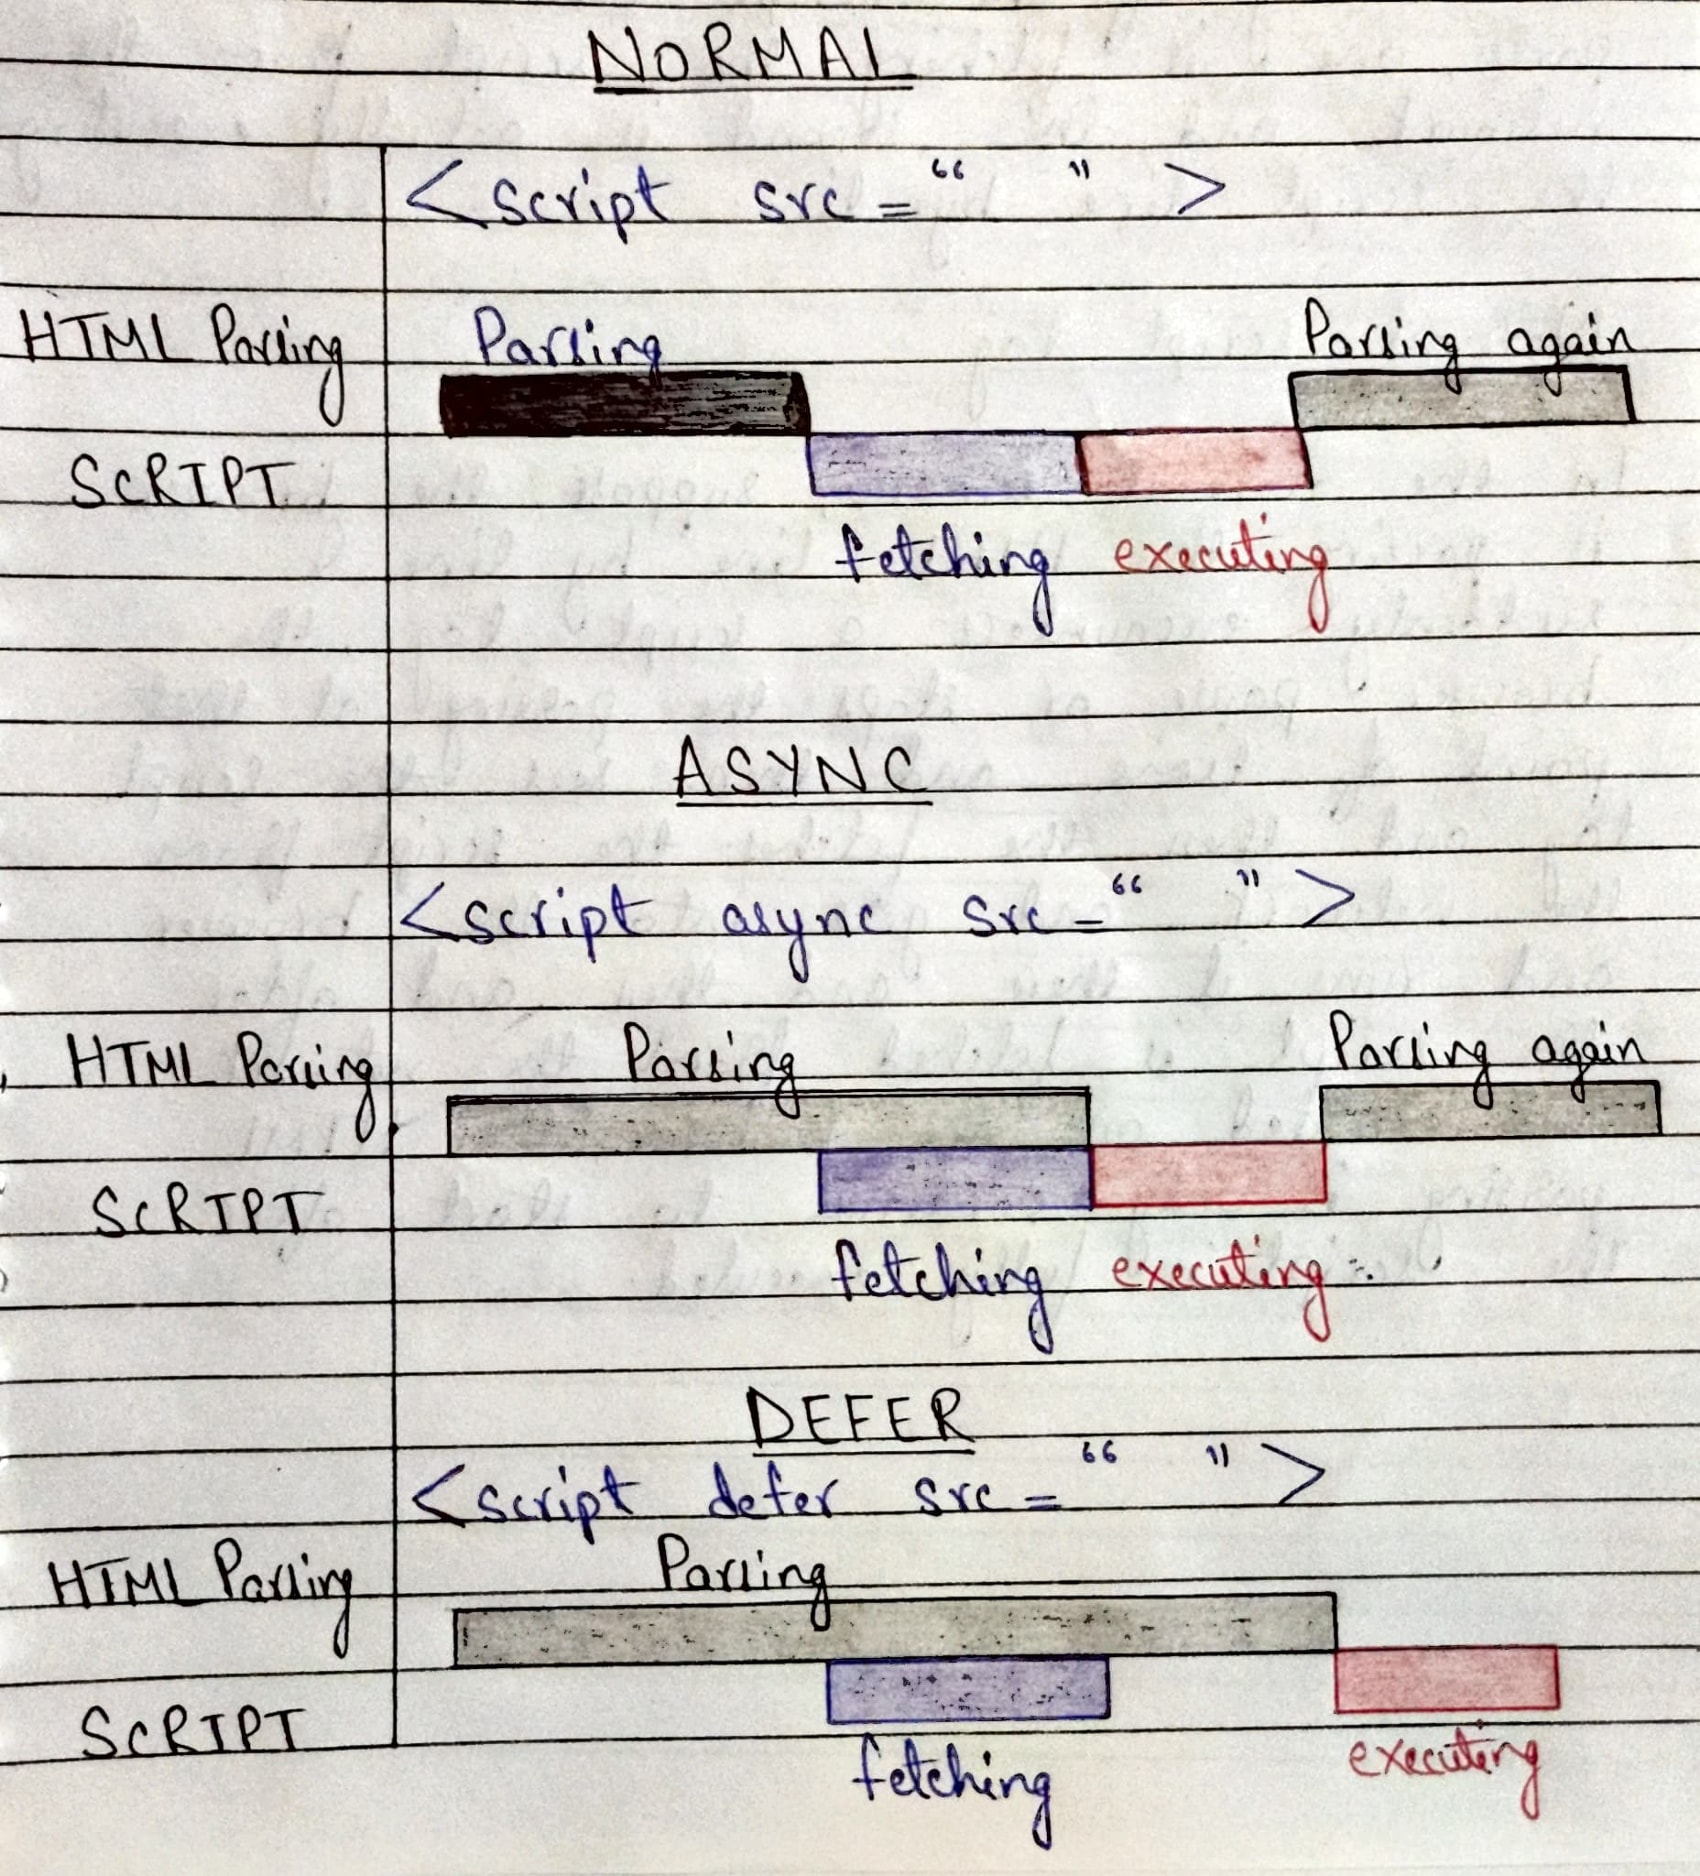 NORMAL
<script src="   ">
HTML Parsing Parsing Parsing again
SCRIPT
fetching executing
ASYNC
<script async src="   ">
HTML Parsing Parsing Parsing again
SCRIPT
fetching executing
DEFER
<script defer src="   ">
HTML Parsing Parsing
SCRIPT
fetching executing